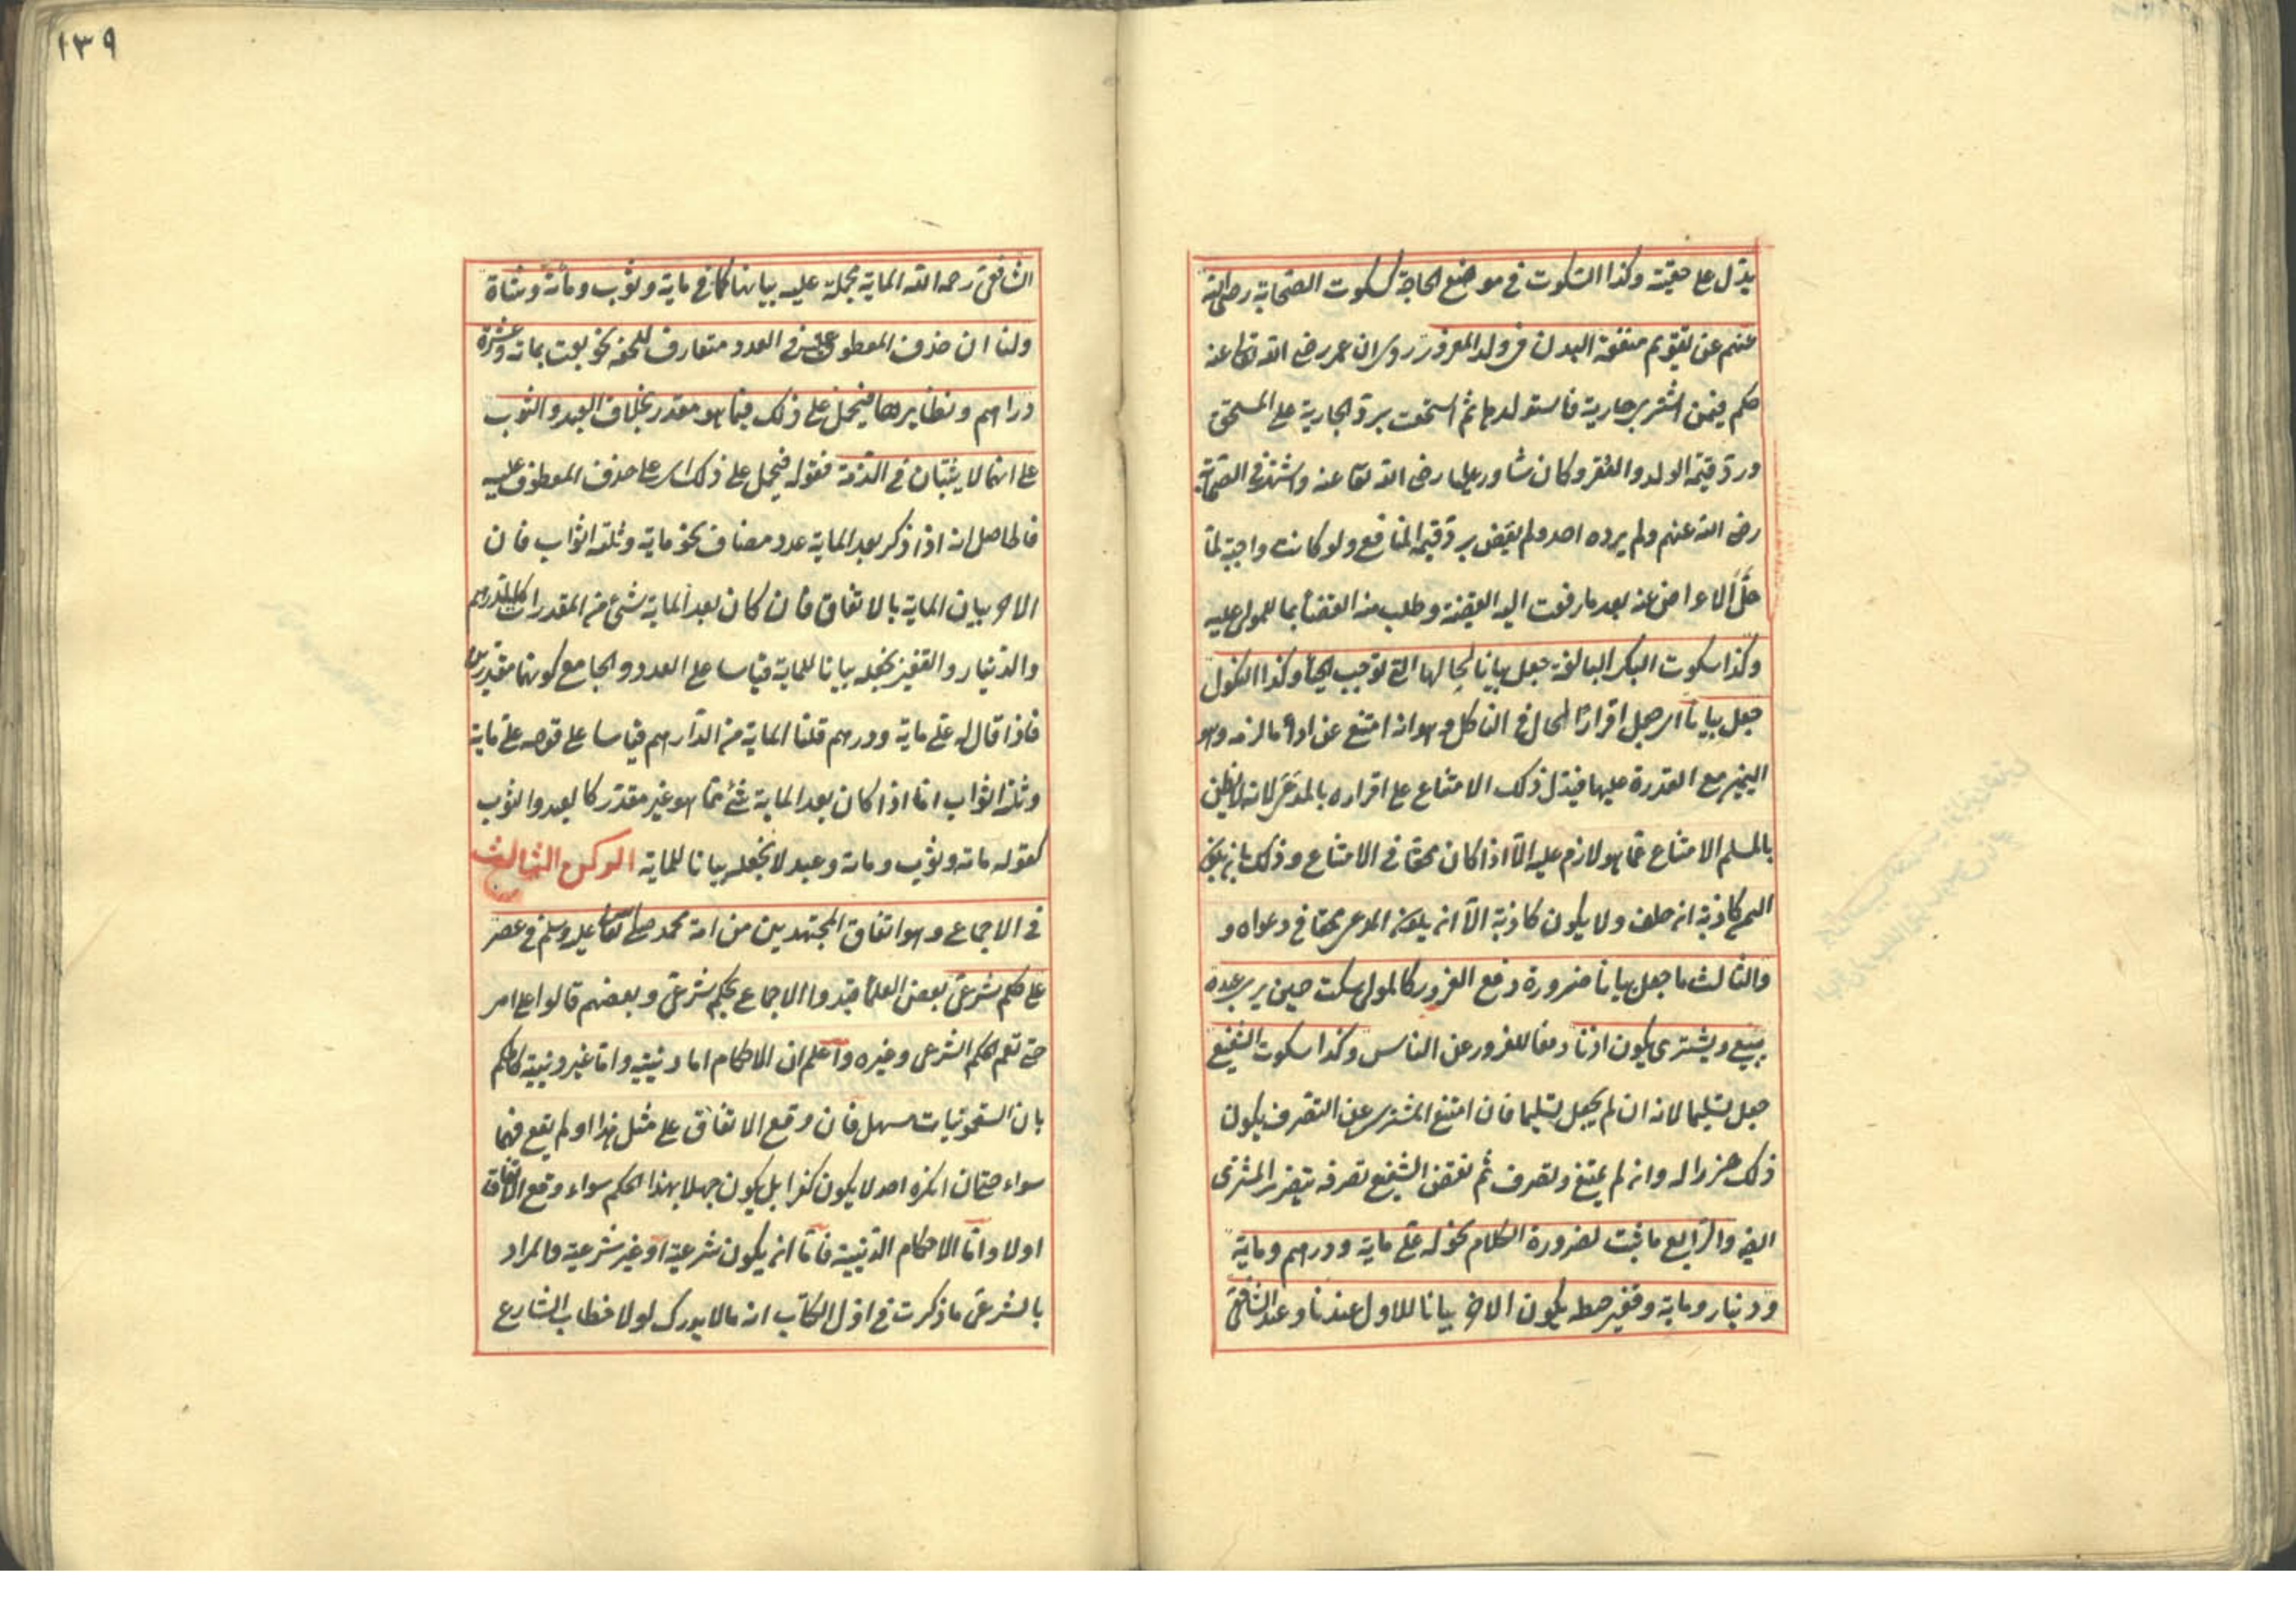 يدل على حقيته وكذا السكوت في موضع الحاجة كسكوت الصحابة رضي الله
عنهم عن تقويم منفعة البدن في ولد المغرور روي ان عمر رضي الله تعالى عنه
حكم فيمن اشترى جارية فاستولدها ثم استحقت برد الجارية على المستحق
ورد قيمة الولد والعقر وكان شاور عليا رضي الله تعا عنه واشتهر في الصحابة
رضي الله عنهم ولم يرده احد ولم يقض برد قيمة المنافع ولو كانت واجبة لما
حل الاعراض عنه بعد ما رفعت اليه القضية وطلب منه القضاء بما للمولى عليه
وكذا سكوت البكر البالغة جعل بيانا لحالها التي توجب الحياء وكذا النكول
جعل بيانا اي جعل اقرارا لحال في الناكل وهو انه امتنع عن اداء ما لزمه وهو
اليمين مع القدرة عليها فيدل ذلك الامتناع على اقراره بالمدعى لانه لا يظن
بالمسلم الامتناع عما هو لازم عليه الا اذا كان محقا في الامتناع وذلك بان يكون
اليمين كاذبة ان حلف ولا يكون كاذبة الا ان يكون المدعي محقا في دعواه و
والثالث ما جعل بيانا ضرورة دفع الغرور كالمولى يسكت حين يرى عبده
يبيع ويشتري يكون اذنا دفعا للغرور عن الناس وكذا سكوت الشفيع
جعل تسليما لانه ان لم يجعل تسليما فان امتنع المشتري عن التصرف يكون
ذلك ضررا له وان لم يمتنع وتصرف ثم نقض الشفيع تصرفه يتضرر المشتري
ايضا والرابع ما ثبت لضرورة الكلام نحو له علي ماية ودرهم وماية
ودينار وماية وقفيز حنطة يكون الاخر بيانا للاول عندنا وعند الشافعي
١٣٩
الشافعي رحمه الله الماية مجملة عليه بيانها كما في ماية وثوب ومائة وشاة
ولنا ان حذف المعطوف عليه في العدد متعارف للخفة نحو بعت بمائة وعشرة
دراهم ونظايرها فيحمل على ذلك فيما هو مقدر بخلاف العبد والثوب
على انهما لا يثبتان في الذمة فقوله فيحمل على ذلك اي على حذف المعطوف عليه
فالحاصل انه اذا ذكر بعد الماية عدد مضاف نحو ماية وثلثة اثواب فان
الاخر بيان الماية بالاتفاق فان كان بعد الماية شئ من المقدرات كالدرهم
والدينار والقفيز نجعله بيانا للماية قياسا على العدد والجامع كونهما مقدرين
فاذا قال له علي ماية ودرهم قلنا الماية من الدراهم قياسا على قوله علي ماية
وثلثة اثواب اما اذا كان بعد الماية شئ مما هو غير مقدر كالعبد والثوب
كقوله مائة وثوب ومائة وعبد لا نجعله بيانا للماية الركن الثالث
في الاجماع وهو اتفاق المجتهدين من امة محمد صلى الله تعا عليه وسلم في عصر
على حكم شرعي بعض العلماء قيدوا الاجماع بحكم شرعي وبعضهم قالوا على امر
حتى تعم الحكم الشرعي وغيره واعلم ان الاحكام اما دينية واما غير دينية كالحكم
بان السقمونيات مسهل فان وقع الاتفاق على مثل هذا او لم يقع فهما
سواء حتى ان انكره احد لا يكون كفرا بل يكون جهلا بهذا الحكم سواء وقع الاتفاق
اولا واما الاحكام الدينية فاما ان يكون شرعية او غير شرعية والمراد
بالشرعي ما ذكرت في اول الكتاب انه ما لا يدرك لولا خطاب الشارع